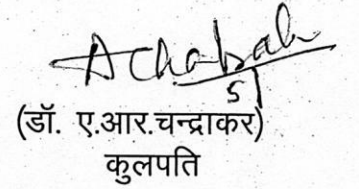 (डॉ. ए.आर.चन्द्राकर)
कुलपति